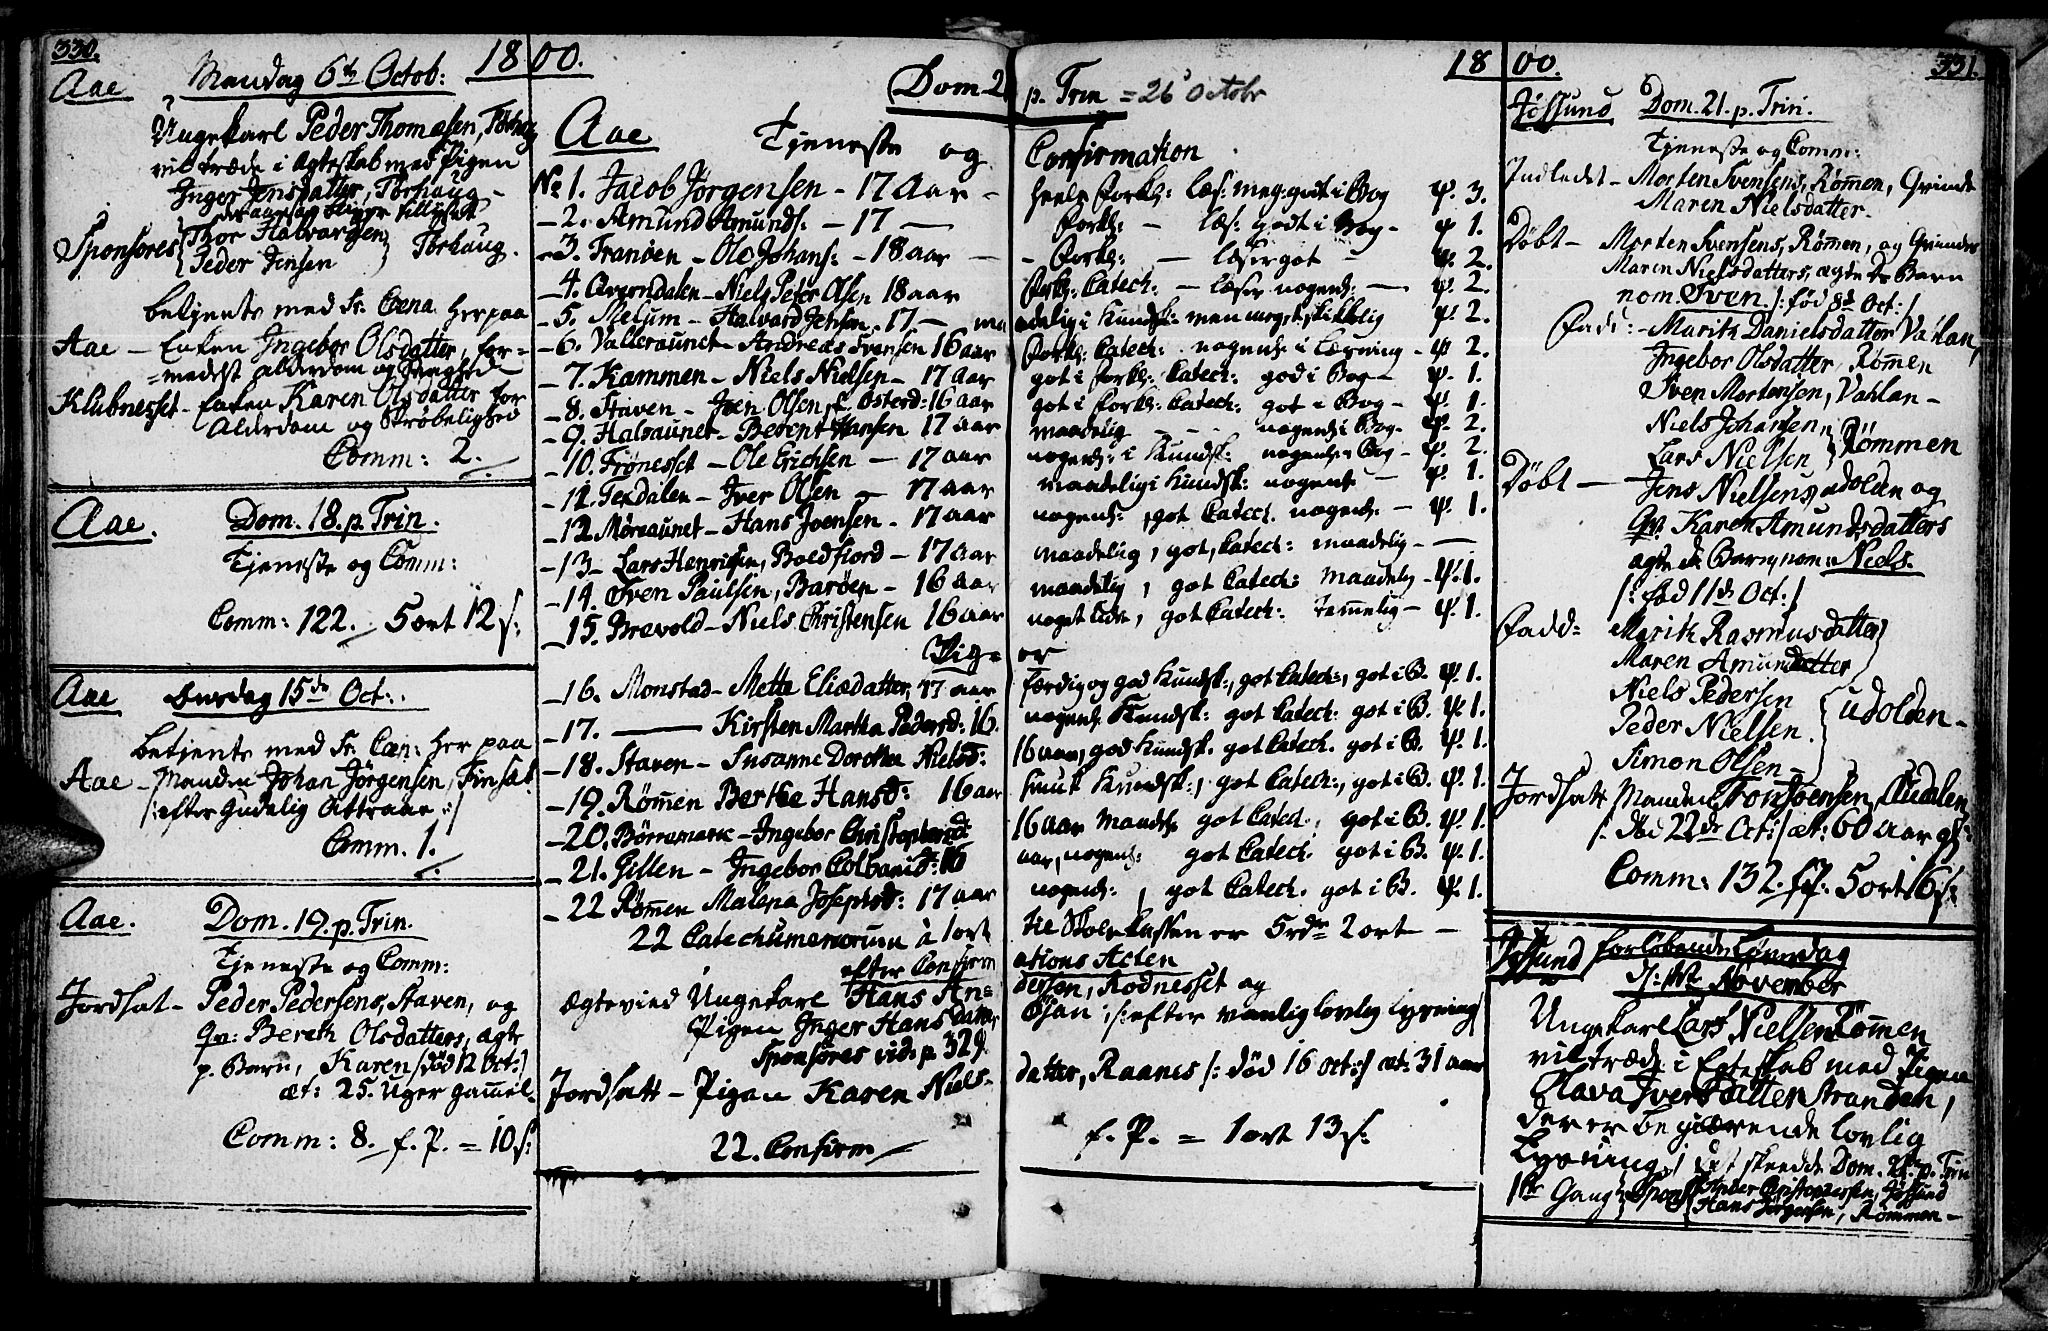 330.
1800.
Aae
Mandag 6te Octob:
Ungekarl Peder Thomasen, Tørhog
vil træde i Ægteskab med Pigen
Inger Jensdatter, Tørhaug -
Sponsores Thor Halvorsen
Peder Jensen
Tørhaug.
betjente med Sr. Coena her paa
Aae - Enken Ingebor Olsdatter, for-
=medelst alderdom og Svaghed
Klubnesset - Enken Karen Olsdatter for
Alderdom og Skrøbelighed
Comm: 2.
Aae.
Dom. 18. p. Trin.
Tjeneste og Comm:
Comm: 122. 5 ort 12 s:
Aae
Onsdag 15de Oct:
betjente med Sr. Cœn: her paa
Aae - Manden Johan Jørgensen, Finsæt
/: efter Gudelig Attraae :/
Comm. 1.
Aae.
Dom. 19. p. Trin.
Tjeneste og Comm:
Jordsat - Peder Pedersens, Staven, og
Qv: Bereth Olsdatters, ægte
p. Barn, Karen /død 12 Oct:/
æt: 25. Uger gammel.
Comm: 8. f. P. = 10 s:
Dom 21 p. Trin = 26 Octobr
Aae Tjeneste og Confirmation
No 1. Jacob Jørgensen - 17 Aar - heele Forkl: læs: meg: got i Bog ψ. 3.
- 2. Asmund Amunds: - 17 - Forkl: - læs: godt i Bog - ψ 1.
- 3. Franøen - Ole Johans: - 18 aar - Forkl: - læser got - ψ. 2.
- 4. Averndalen - Niels Peter Olsen 18 aar Forkl: Catech: - læser nogenl: - ψ. 2.
- 5. Melum - Halvard Jensen - 17 - maadelig i Kundsk: men meget skikkelig ψ. 2.
- 6. Valleraunet - Andreas Svensen 16 aar Forkl: Catech: nogenl: i Læsning - ψ 2.
- 7. Kammen - Niels Nielsen - 17 Aar got i Forkl: Catech: god i Bog - ψ. 1.
- 8. Staven - Iven Olsen, f. Osterd: 16 aar got i Forkl: Catech: got i Bog - ψ. 1.
- 9. Halsaunet - Berent Hansen 17 aar maadelig - - - nogenl: i Bog - ψ. 2.
- 10. Frønesset - Ole Erichsen - 17 aar nogenl: i Kundsk: nogenl: i Bog - ψ. 2.
- 11. Terdalen - Iver Olsen - 17 aar maadelig i Kundsk: nogenl: - ψ. 1.
- 12. Møreaunet - Hans Joensen - 17 aar nogenl: got Catech. nogenl: - ψ. 1.
- 13 - Lars Henrichsen, Boldfiord - 17 aar maadelig, got, Catech: maadelig - -
- 14. Sven Paulsen, Barøen - 16 aar maadelig, got Catech: maadelig - ψ. 1.
- 15. Brevold - Niels Christensen 16 aar noget lidt, got Catech: temmelig - ψ. 1.
Piger
- 16. Monstad - Mette Eliædatter, 17 aar færdig og god Kundsk:, got Catech:, got i B. ψ. 1.
- 17. - Kirsten Martha Pedersd: 16. nogenl: Kundsk: got Catech: got i B. ψ. 1.
- 18. Staven - Susanne Dorothea Nielsd: 16 aar, god Kundsk. got Catech. got i B. ψ. 1.
- 19. Rømen Berthe Hansd: 16 aar smuk Kundsk:, got Catech:, got i B. ψ. 1.
- 20. Børremark - Ingebor Christophersd: 16 aar maadel: got Catech., got i B. ψ. 1.
- 21. Gillen - Ingebor Colbansd: 16 aar, nogenl: got Catech. got i B. ψ. 1.
- 22 Rømen Malena Josephsd: 17 aar nogenl:, got Catech. got i B. ψ. 1.
22 Catechumenorum à 1 ort til Skolekassen er 5 rdr 2 ort -
efter Confirmations Acten
Ægtevied Ungekarl Hans Andersen, Rodnesset og
Pigen Inger Hansdatter, Osan, /: efter vanlig lovlig lysning
Sponsores vid. p. 329.
Jordsatt - Pigen Karen Nielsdatter, Raanes /: død 16 Oct :/ æt: 31 aar
22. Confirm f. P. = 1 ort 13 s:
1800.
331.
Jøssund Dom. 21. p. Trin.
Tjeneste og Comm:
Indledet - Morten Svensens, Rømen, Qvinde
Maren Nielsdatter.
Døbt - Morten Svensens, Rømen, og Qvindes
Maren Nielsdatters, ægte de Barn
nom. Sven /: fød 8de Oct :/
Fadd: - Marith Danielsdatter Vahlan,
Ingebor Olsdatter, Rømen
Sven Mortensen, Vahlan -
Niels Johansen
Lars Nielsen
Rømmen
Døbt - Jens Nielsens, udolden og
Qv. Karen Amundsdatters
ægte de Barn, nom: Niels.
/: fød 11de Oct :/
Fadd: Marith Rasmusdatter
Maren Amundatter
Niels Pedersen
Peder Nielsen.
Simon Olsen -
udolden -
Jordsatt Manden Jon Joensen, Audalen
/: død 22de Oct: / æt: 60 aar gl:
Comm: 132. f. P. 5 ort 16 s:
Jøssund forløbende Løverdag
d: 1ste November
Ungekarl Lars Nielsen Rømen
vil træde i Egteskab med Pigen
Olava Iversdatter Stranden,
der er begiærende lovlig
Lysning, det skeedde Dom. 21. p. Trin
1ste Gang Spons: Peder Christophersen, Jøssund
Hans Jørgensen, Rømmen -